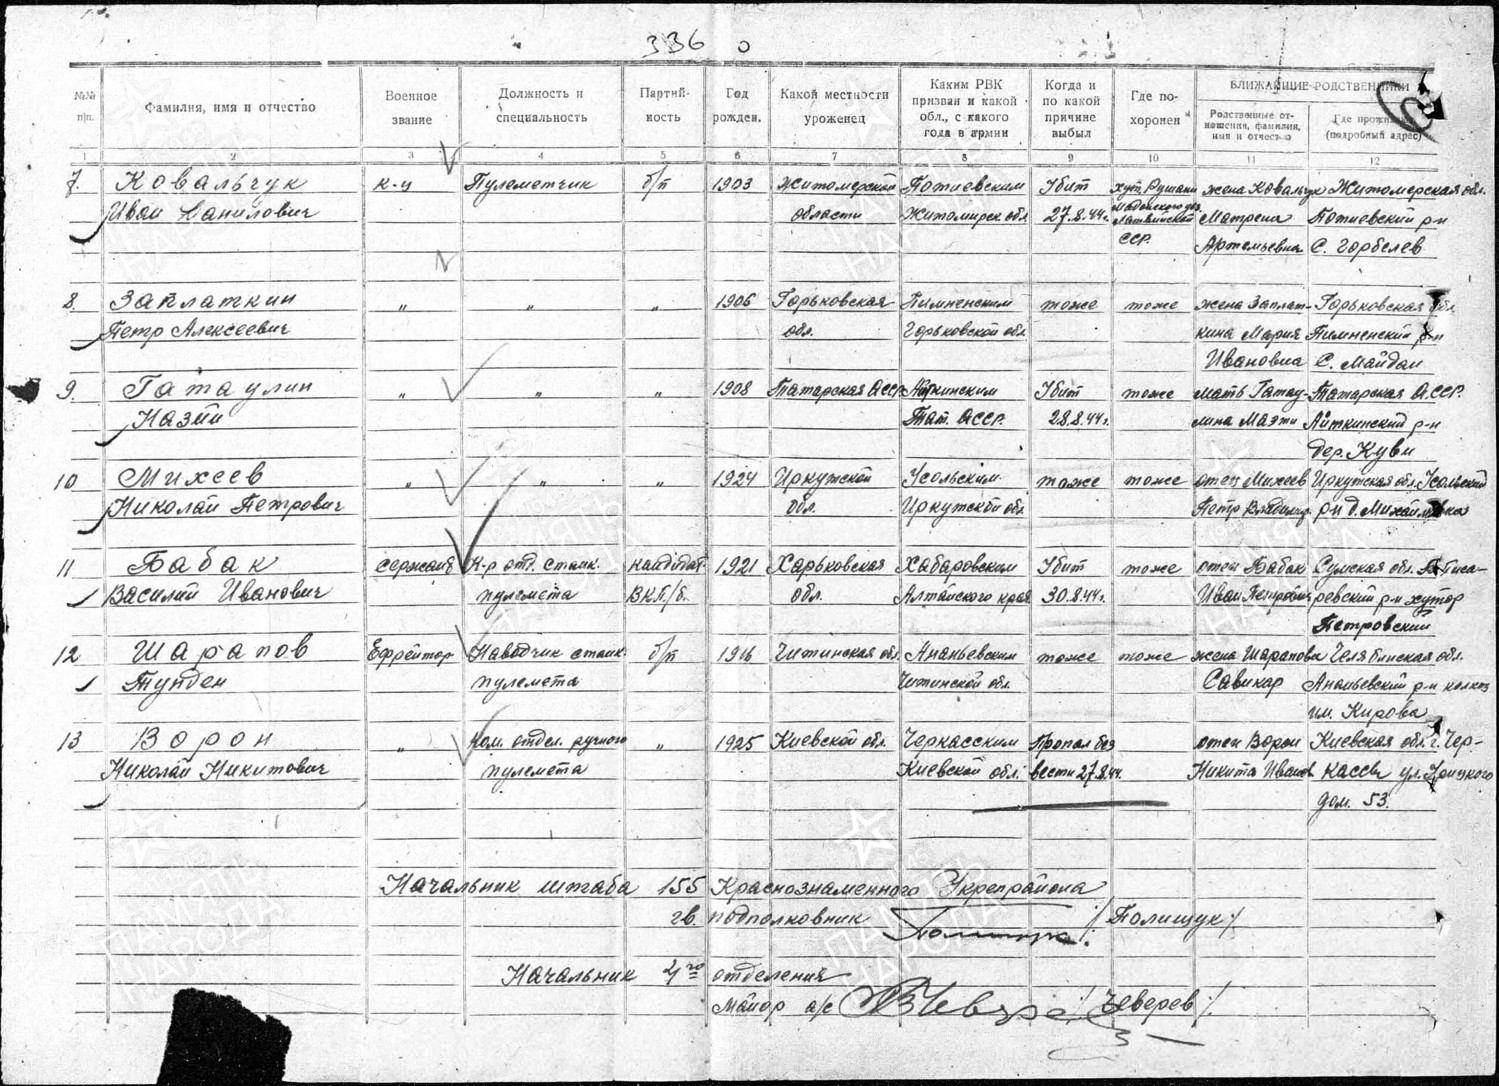 336 0
№№ п/п.
Фамилия, имя и отчество
Военное звание
Должность и специальность
Партий-
ность
Год рожден.
Какой местности уроженец
Каким РВК призван и какой обл., с какого года в армии
Когда и по какой причине выбыл
Где по-
хоронен
БЛИЖАЙШИЕ РОДСТВЕННИКИ
Родственные от-
ношения, фамилия, имя и отчество
Где прожив
(подробный адрес)
1 2 3 4 5 6 7 8 9 10 11 12
7. Ковальчук к-ц Пулеметчик б/п 1903 Житомерской Потиевским Убит хут. Рушани жена Ковальчук Житомерская обл.
Иван Данилович области Житомирск. обл. 27.8.44г. Мадонского уез. Латвийской Матрена Потиевский р-н
ССР. Артемьевна С. Горбелев
8. Заплаткин " " " 1906 Горьковская Пимненским тоже тоже жена Заплат- Горьковская обл.
Петр Алексеевич обл. Горьковской обл. кина Мария Пимненский р-н
Ивановна С. Майдан
9. Гатаулин " " " 1908 Татарская АССР Айткинским Убит тоже мать Гатау- Татарская АССР.
Назий Тат. АССР. 28.8.44г. лина Маэти Айткинский р-н
дер. Куви
10 Михеев " " " 1924 Иркутской Усольским тоже тоже отец Михеев Иркутская обл. Усольский
Николай Петрович обл. Иркутской обл. Петр р-н д. Михайловка
11 Бабак сержант К-р отд. станк. кандидат 1921 Харьковская Хабаровским Убит тоже отец Бабак Сумская обл. Писа-
Василий Иванович пулемета ВКП/б. обл. Алтайского края 30.8.44г. Иван Петрович ревский р-н хутор
Петровский
12 Шарапов Ефрейтор Наводчик станк. б/п 1916 Читинская обл. Ананьевским тоже тоже жена Шарапова Челябинская обл.
Тунден пулемета Читинской обл. Савикар Ананьевский р-н колхоз
им. Кирова
13 Ворон " Ком. отдел. ручного " 1925 Киевской обл. Черкасским Пропал без отец Ворон Киевская обл. г. Чер-
Николай Никитович пулемета Киевской обл. вести 27.8.44. Никита Иванов. кассы ул. Урицкого
дом. 53.
Начальник штаба 155 Краснознаменного Укрепрайона
гв. подполковник /Полищук/
Начальник 4го отделения
Майор а/с /Чеверев/
ПАМЯТЬ НАРОДА